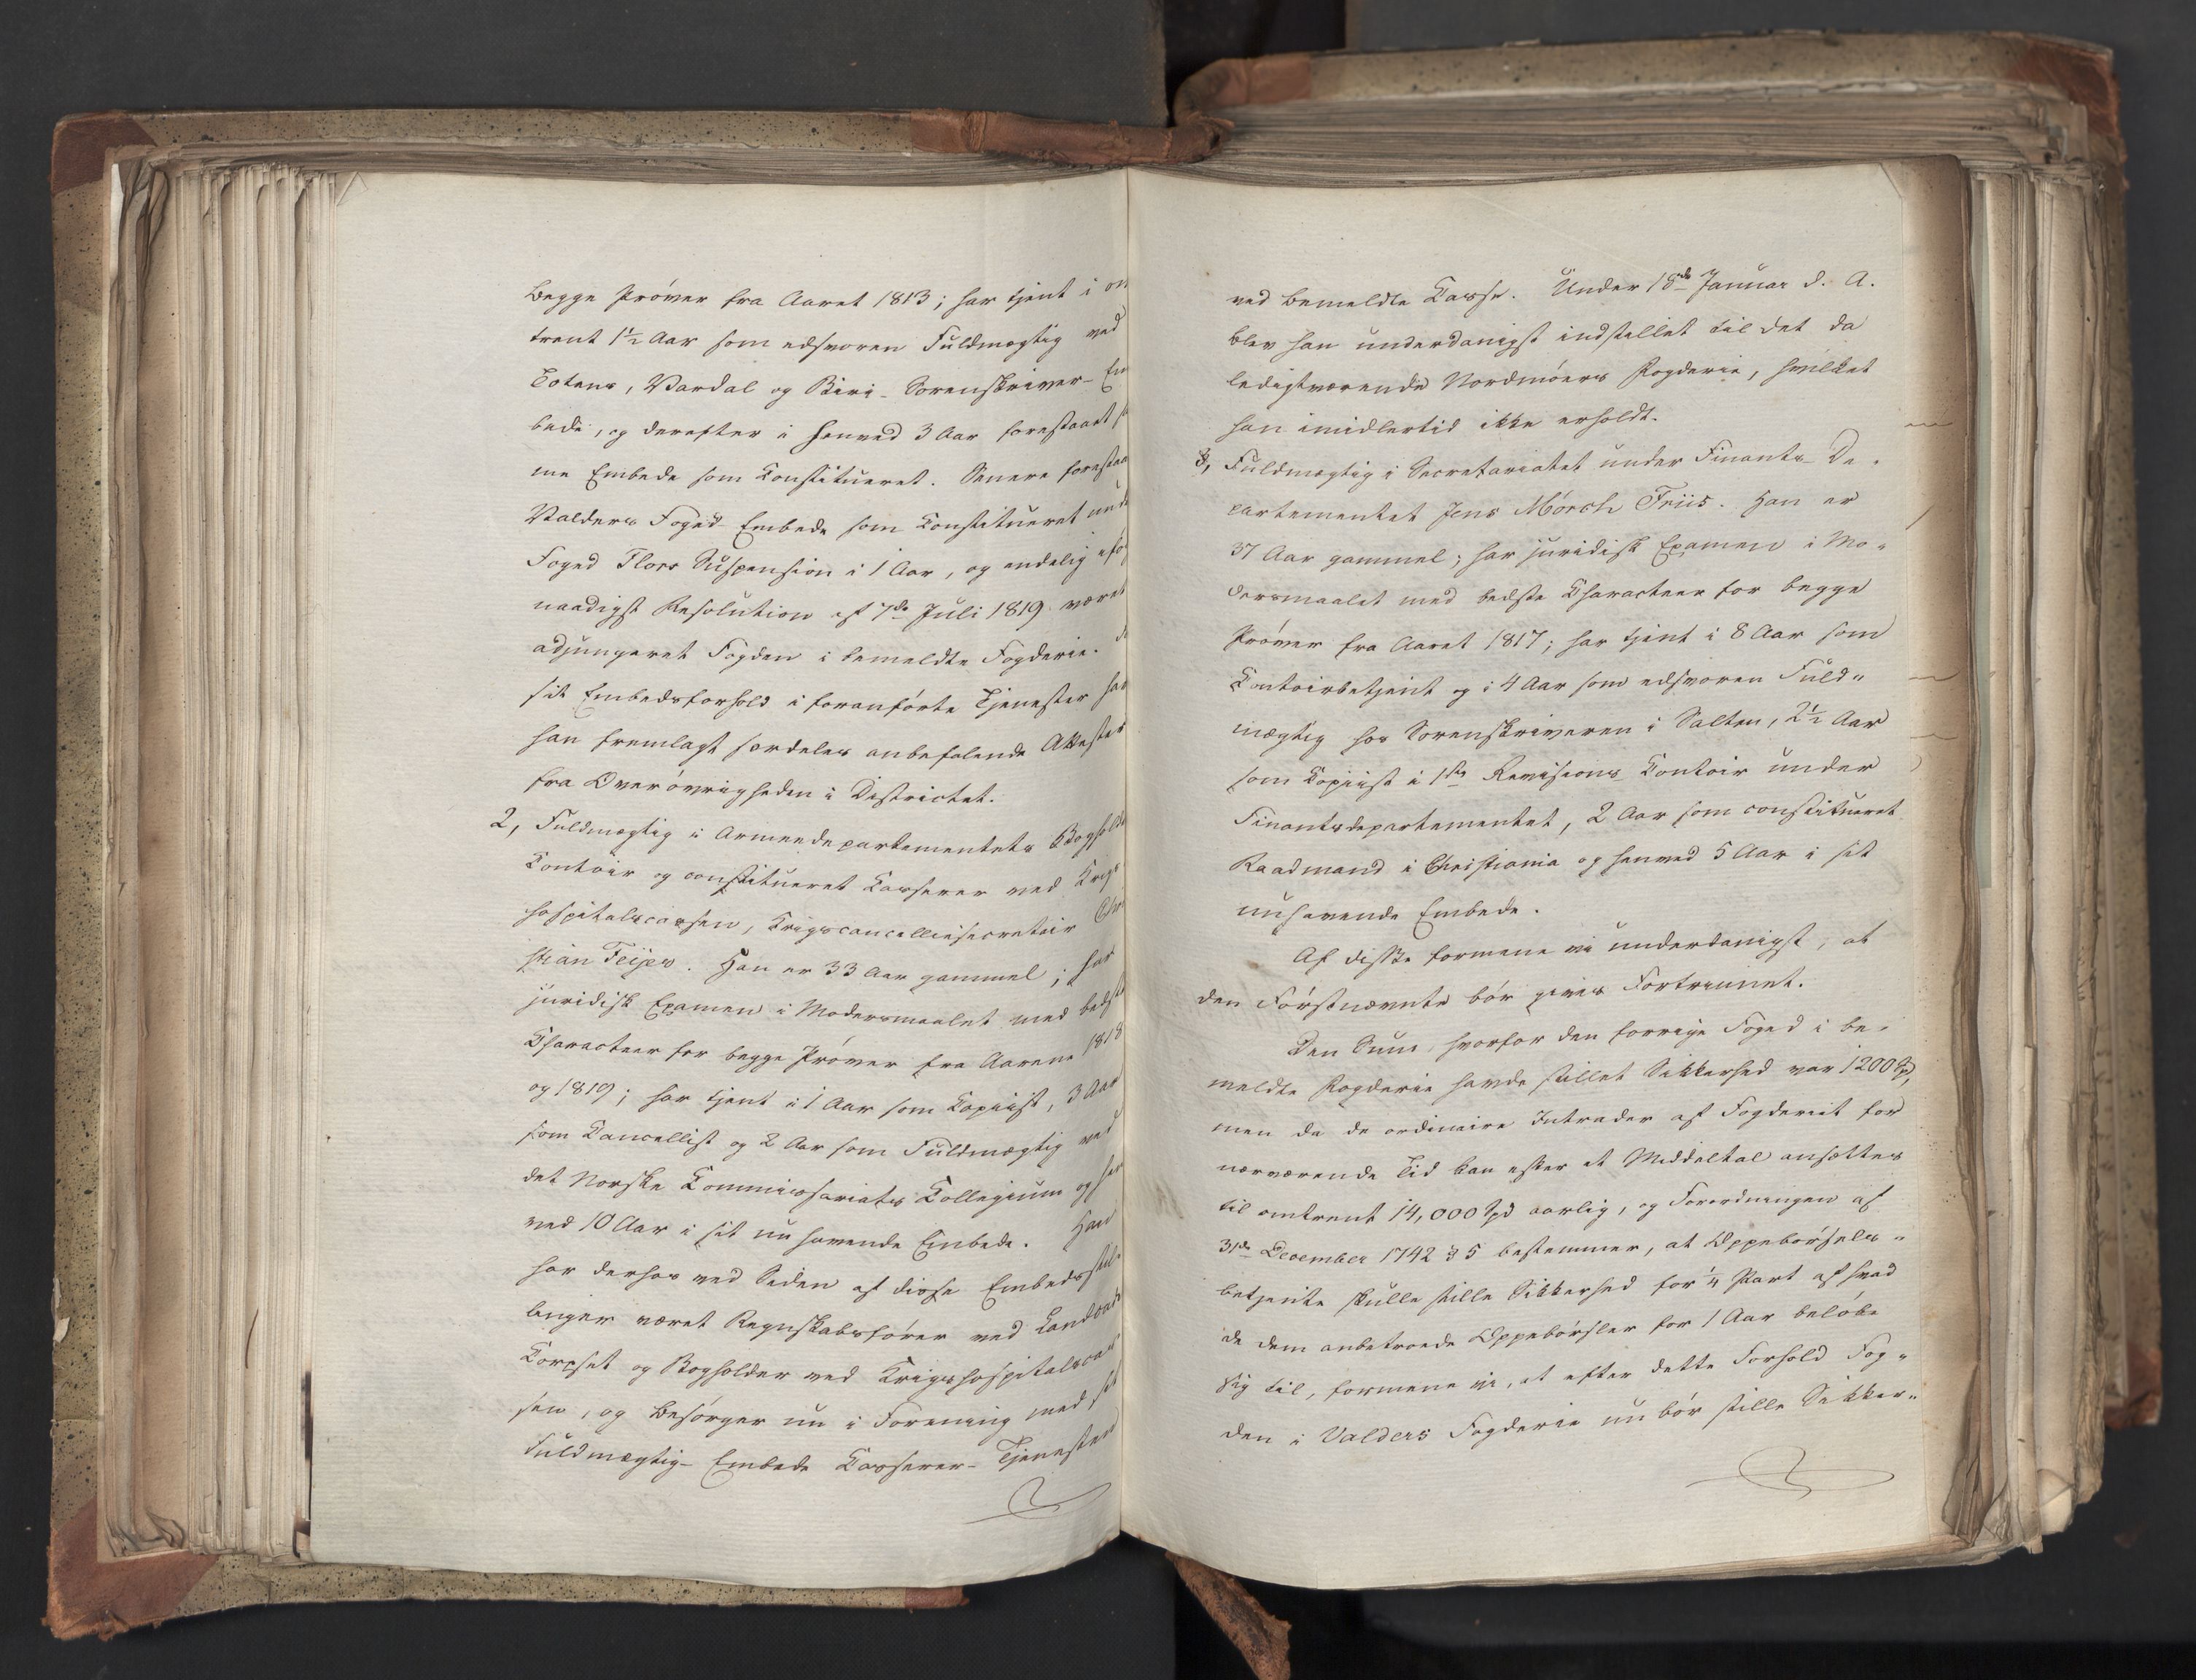 begge Prøver fra Aaret 1813; har tjent i om
trent 1½ Aar som edsvoren Fuldmægtig ved
Totens, Vardal og Biri-Sorenskriver-Em
bede, og derefter i henved 3 Aar forestaaet
me Embede som Constitueret. Senere forestaa
Valders Foged-Embede som Constitueret unde
Foged Flors Suspension i 1 Aar, og endelig
naadigst Resolution af 7de Juli 1819 været
adjungeret Fogden i bemeldte Fogderie.
sit Embedsforhold i foranførte Tjenester har
han fremlagt særdeles anbefalende Attester
fra Overøvrigheden i Districtet.
2, Fuldmægtig i Armeedepartementets Boghold
Contoir og constitueret Casserer ved Krigs
hospitalscassen, Krigscancelliesecretair Chri
stian Feijer. Han er 33 Aar gammel; har
juridisk Examen i Modersmaalet med bedste
Characteer for begge Prøver fra Aarene 1818
og 1819; har tjent i 1 Aar som Copiist, 3 Aar
som Cancellist og 2 Aar som Fuldmægtig ved
det Norske Commissariats Collegium og hen
ved 10 Aar i sit nu havende Embede. Han
har derhos ved Siden af disse Embedsstil
linger været Regnskabsfører ved Landcadet
Corpset og Bogholder ved Krigshospitalscas
sen, og besørger nu i Forening med sit
Fuldmægtig-Embede Casserer-Tjenesten
ved bemeldte Casse. Under 18de Januar d. A.
blev han underdanigst indstillet til det da
ledigtværende Nordmøers Fogderie, hvilket
han imidlertid ikke erholdt.
3, Fuldmægtig i Secretariatet under Finants-De-
partementet Jens Mörch Friis. Han er
37 Aar gammel; har juridisk Examen i Mo-
dersmaalet med bedste Characteer for begge
Prøver fra Aaret 1817; har tjent i 8 Aar som
Contoirbetjent og i 4 Aar som edsvoren Fuld-
mægtig hos Sorenskriveren i Salten, 2½ Aar
som Copiist i 1ste Revisions Contoir under
Finantsdepartementet, 2 Aar som constitueret
Raadmand i Christiania og henved 5 Aar i sit
nuhavende Embede.
Af disse formene vi underdanigst, at
den Førstnævnte bør gives Fortrinnet.
Den Sum, hvorfor den forrige Foged i be-
meldte Fogderie havde stillet Sikkerhed var 1200 Spd,
men da de ordinaire Intrader af Fogderiet for
nærværende Tid kan efter et Middeltal ansættes
til omtrent 14,000 Spd aarlig, og Forordningen af
31de December 1742 § 5 bestemmer, at Oppebørsels-
betjente skulle stille Sikkerhed for ¼ Part af hvad
de dem anbetroede Oppebørsler for 1 Aar beløbe
sig til, formene vi, at efter dette Forhold Fog-
den i Valders Fogderie nu bør stille Sikker-